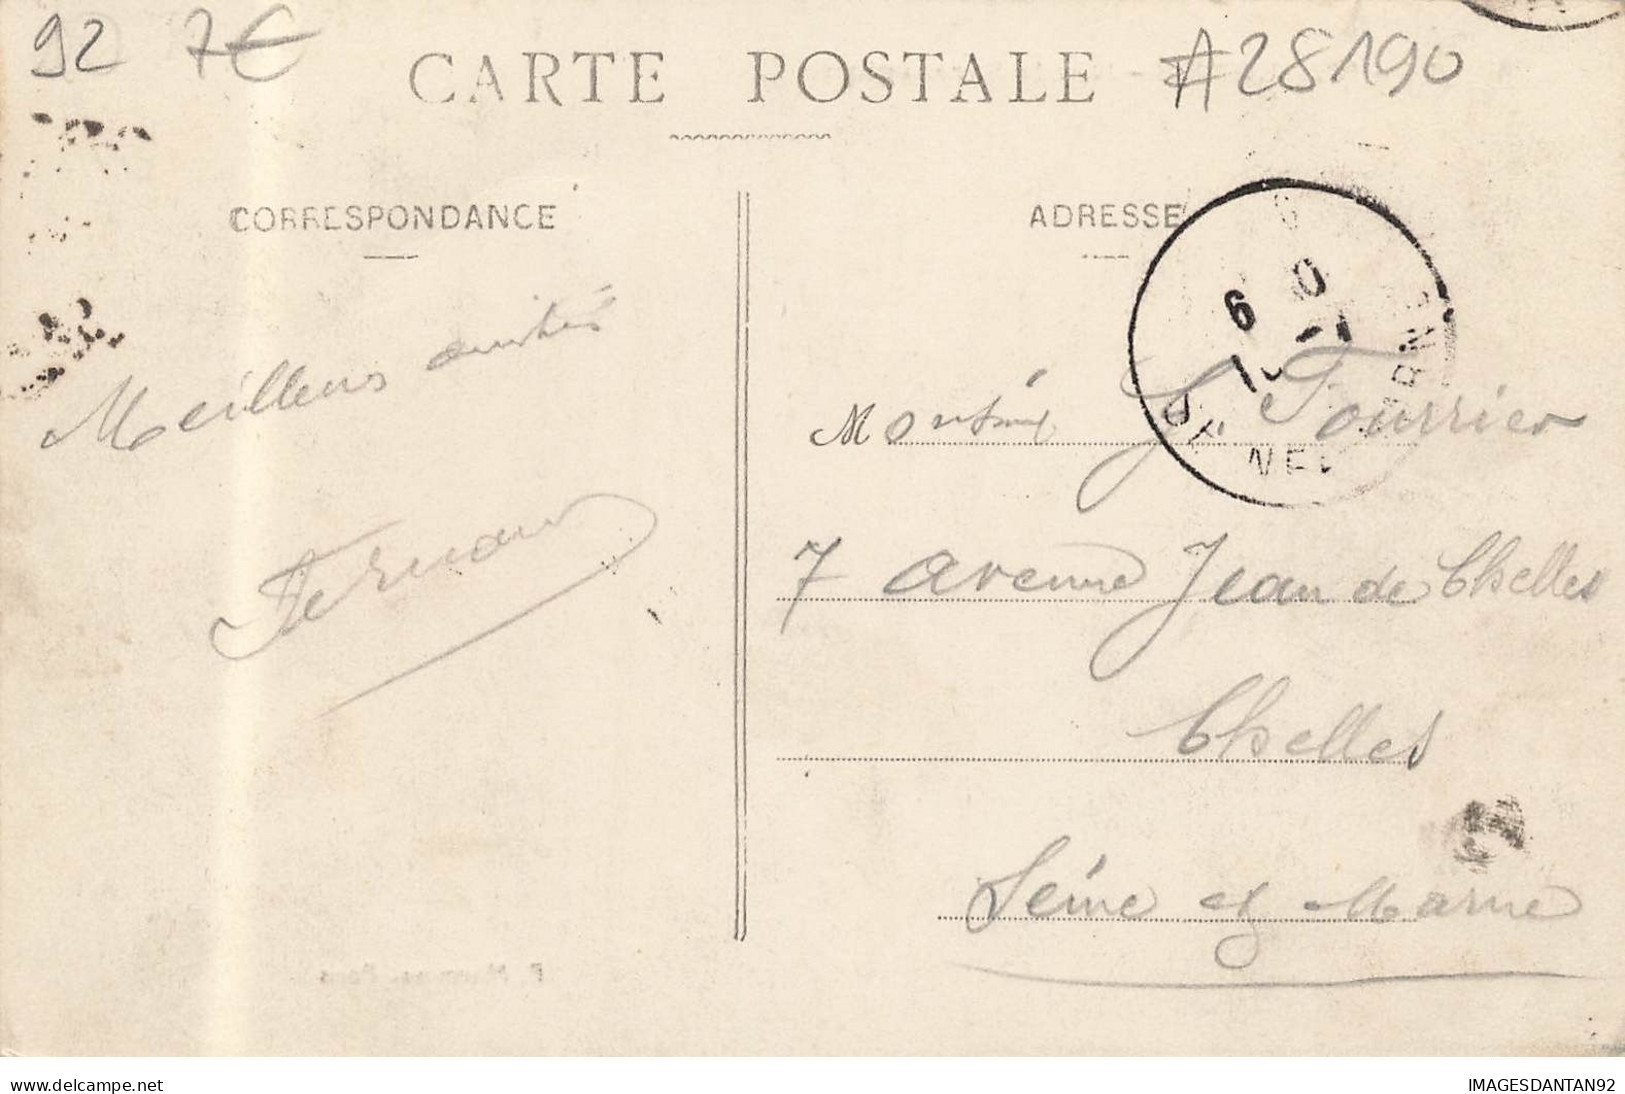 92 7€
CARTE POSTALE
#28190
CORRESPONDANCE
ADRESSE
Meilleurs amitiés
Fernand
6
Monsieur J. Fourrier
7 avenue Jean de Chelles
Chelles
Seine et Marne
delcampe.net
IMAGESDANTAN92